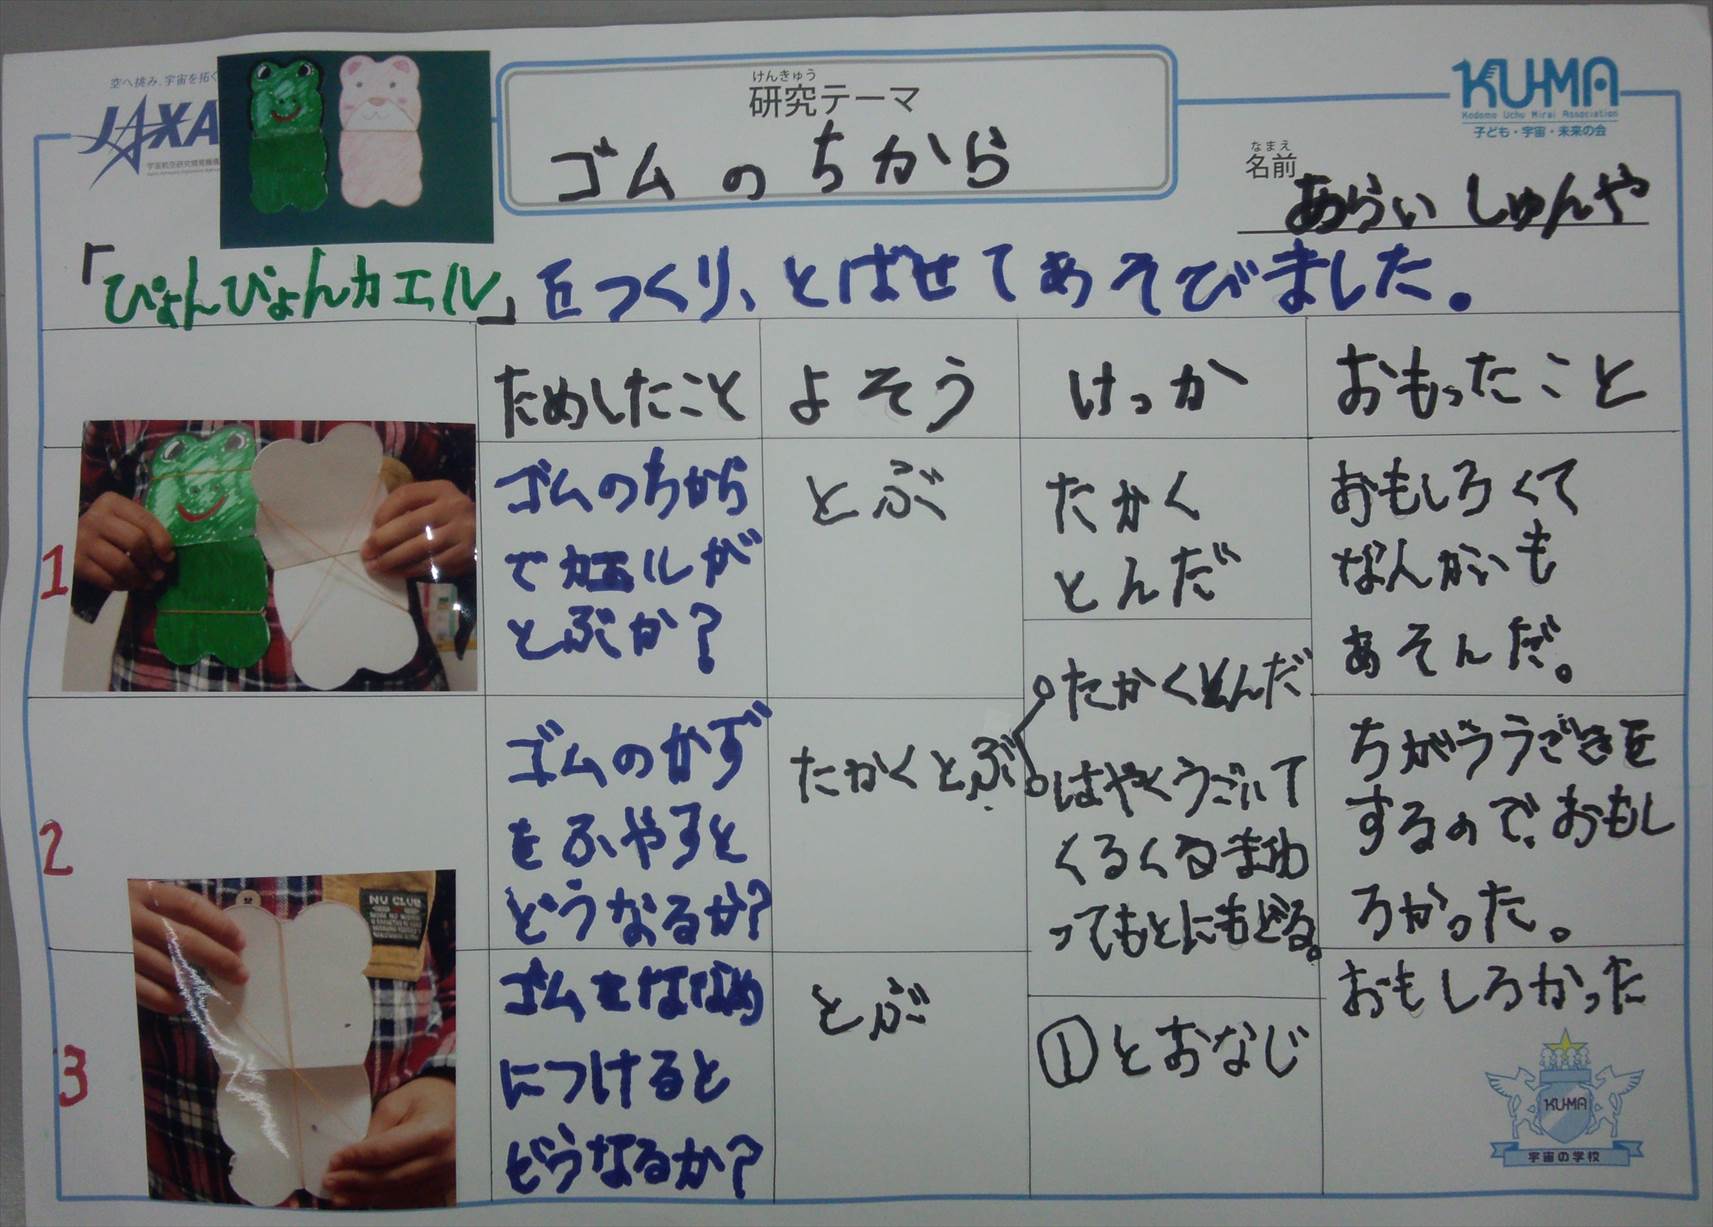 空へ挑み、宇宙を拓く
JAXA
けんきゅう
研究テーマ
ゴムのちから
KU-MA
Kodomo Uchu Mirai Association
子ども・宇宙・未来の会
なまえ
名前
あらい しゅんや
「ぴょんぴょんカエル」をつくり、とばせてあそびました。
ためしたこと
よそう
けっか
おもったこと
1
ゴムのちから
でカエルが
とぶか?
とぶ
たかく
とんだ
おもしろくて
なんかいも
あそんだ。
2
ゴムのかず
をふやすと
どうなるか?
たかくとぶ
たかくとんだ
はやくうごいて
くるくるまわ
ってもとにもどる。
ちがううごきを
するので、おもし
ろかった。
NU CLUB
3
ゴムをななめ
につけると
どうなるか?
とぶ
①とおなじ
おもしろかった
KU-MA
宇宙の学校